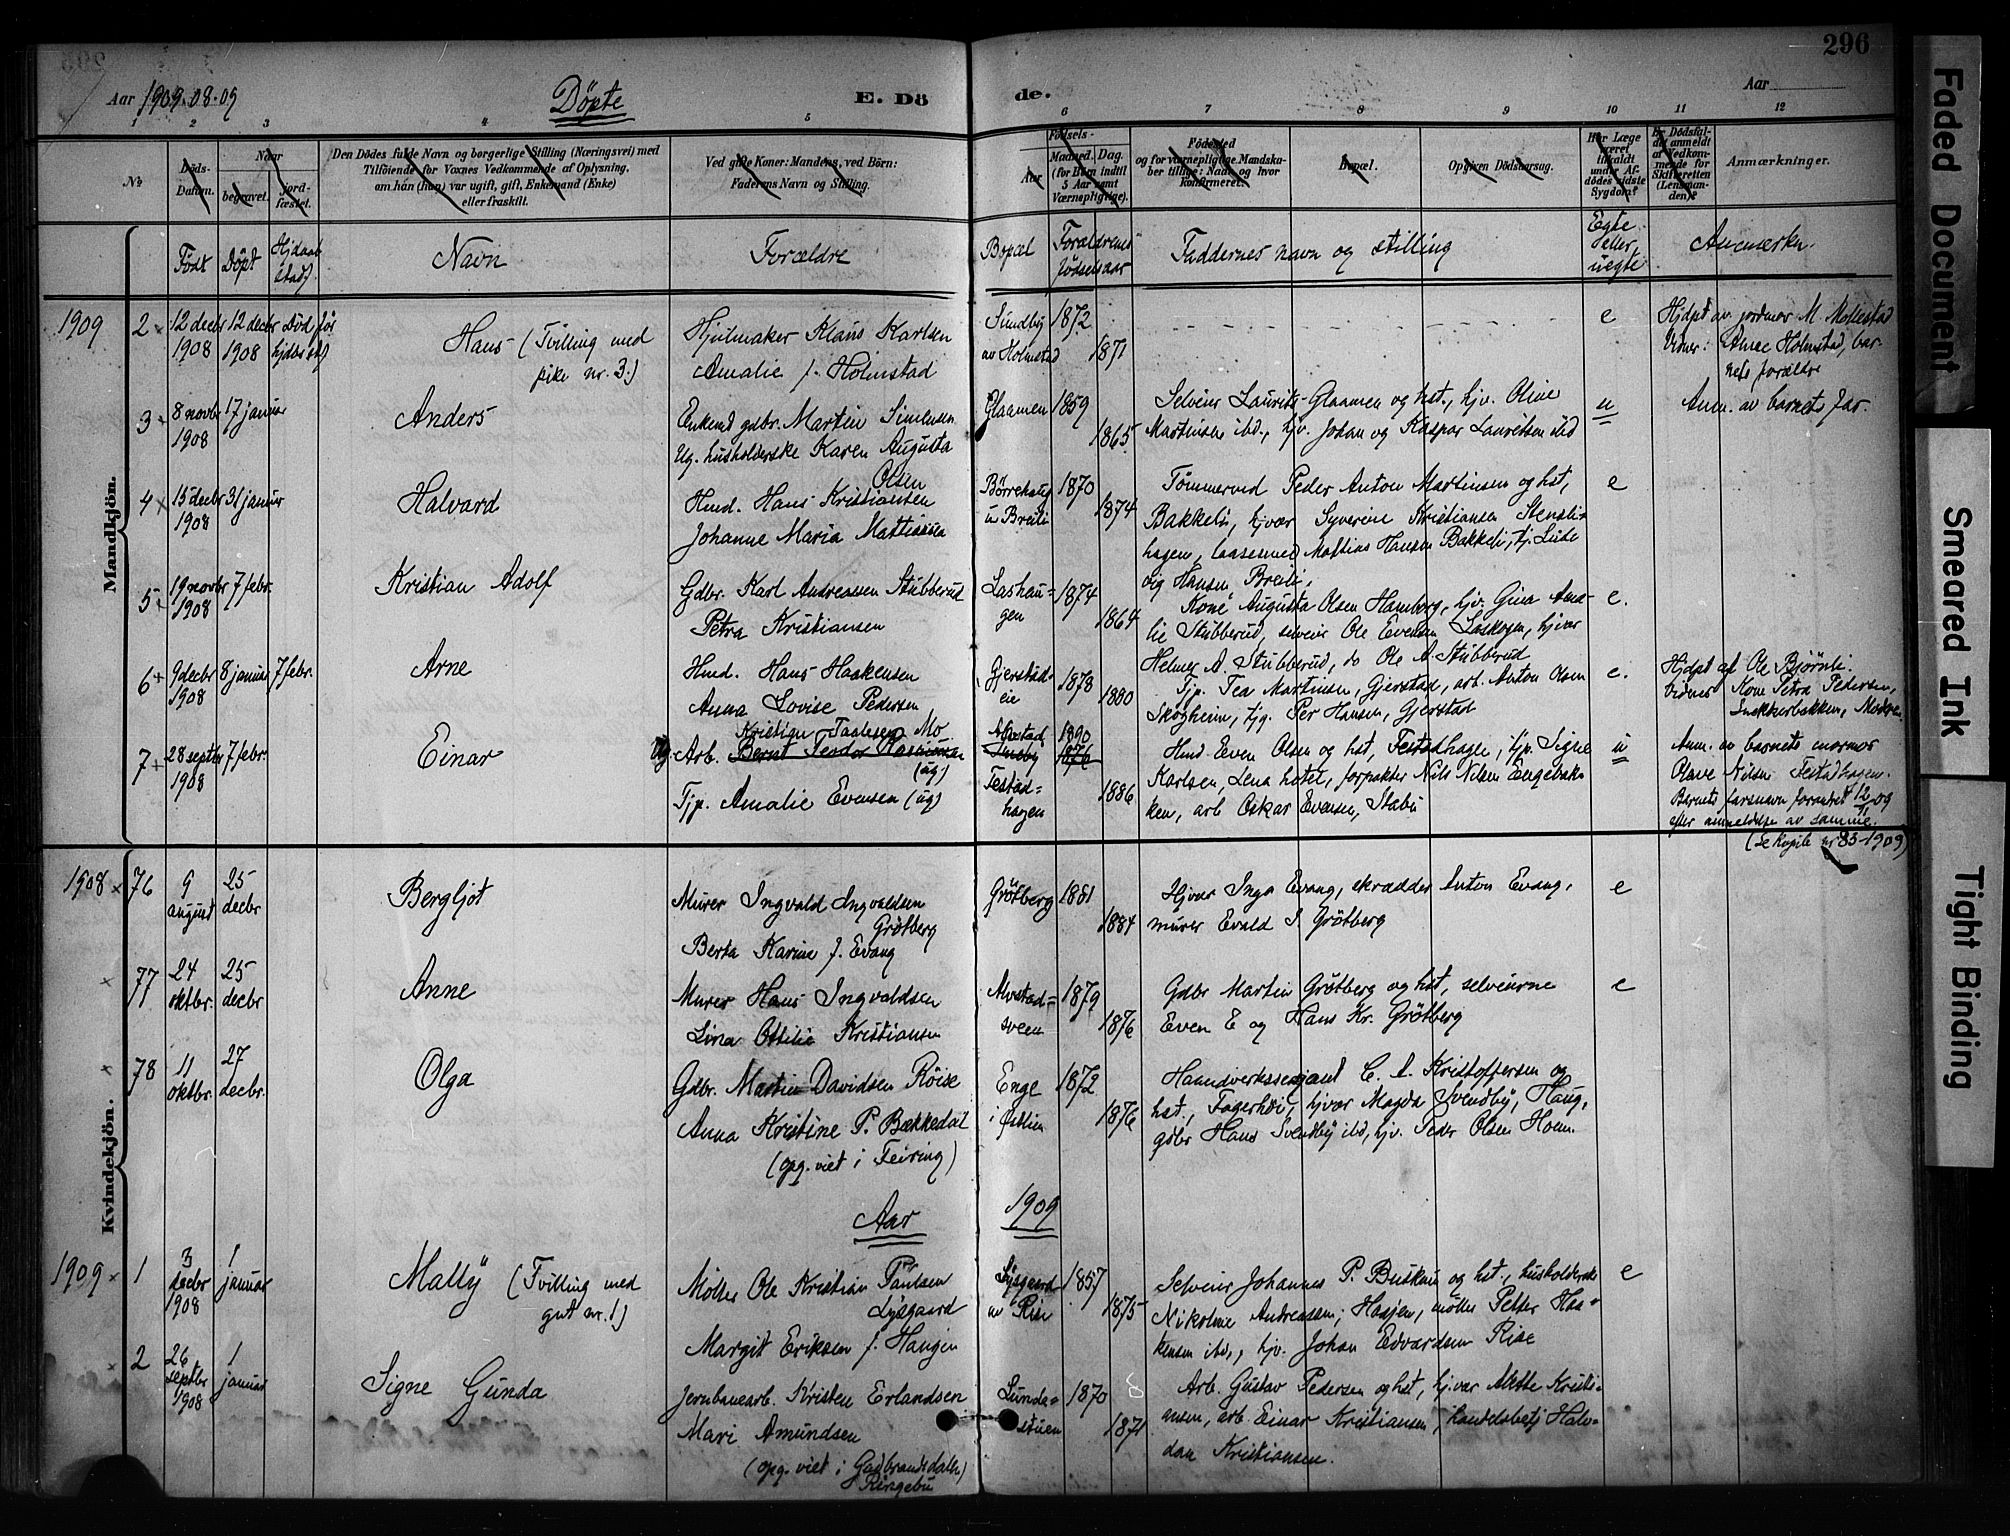 296
Aar 1909.08.09
Döpte
E. Döde.
Aar
1 2 3 4 5 6 7 8 9 10 11 12
No
Döds-Datum.
Naar
begravet.
jord-fæstet.
Den Dödes fulde Navn og borgerlige Stilling (Næringsvei) med
Tilföiende for Voxnes Vedkommende af Oplysning,
om hån (hun) var ugift, gift, Enkemand (Enke)
eller fraskilt.
Ved gifte Koner: Mandens, ved Börn:
Faderens Navn og Stilling.
Födsels-
Aar
Maaned. (for Börn indtil 5 Aar samt Værnepligtige).
Dag.
Födested
og for værnepligtige: Mandska-
ber tillige: Naar og hvor
konfirmeret.
Bopæl.
Opgiven Dödsaarsag.
Har Læge været tilkaldt under Afdödes sidste Sygdom?
Er Dödsfaldet anmeldt af Vedkommende for Skifteretten (Lensmanden)?
Anmærkninger.
Mandkjön.
Født
Döpt
Hjdaab
stadf
Navn
Forældre
Bopæl
Forældrenes
fødselsaar
Faddernes navn og stilling
Egte
eller
uegte
Anmærkn.
1909
2 12 decbr 1908 12 decbr 1908 Död før hjdbs stf
Hans (Tvilling med
pike nr. 3.)
Hjulmaker Klaus Karlsen
Amalie f. Holmstad
Sundby
av Holmstad
1872
1871
e
Hjdøpt av jordmor M. Mollestad
Vidner: Anne Holmstad, bar-
nets forældre
3 8 novbr 1908 17 januar
Anders
Enkemd gdbr. Martin Simensen
Ug. husholderske Karen Augusta
Olsen
Glaamen
1859
1865
Selveier Laurits Glaamen og hst., hjv. Oline
Martinsen ibd., hjv. Johan og Kaspar Lauritsen ibd
u
Anm. av barnets far.
4 15 decbr 1908 31 januar
Halvard
Hmd. Hans Kristiansen
Johanne Maria Mattissen
Børrehaug
u Breili
1870
1874
Tømmermd Peder Anton Martinsen og hst,
Bakkeli, hjvær Syverine Kristiansen Stensli-
hagen, laasesmed Mattias Hansen Bakkeli, hj. Lud-
vig Hansen Breili.
e
5 19 novbr 1908 7 febr.
Kristian Adolf
Gdbr. Karl Andreassen Stubberud
Petra Kristiansen
Lashau-
gen
1874
1864
Kone Augusta Olsen Hamborg, hjv. Gina Ama-
lie Stubberud, selveier Ole Evensen Laskogen, hjvær
Helmer A. Stubberud, do Ole A. Stubberud
e.
6 9 decbr 1908 8 januar 7 febr.
Arne
Hmd. Hans Haakensen
Anna Lovise Pedersen
Gjerstad-
eie
1878
1880
Tjp. Tea Martinsen, Gjerstad, arb. Anton Olsen
Skogheim, tjg. Per Hansen, Gjerstad
e.
Hjdpt af Ole Bjørnli.
Vidner Kone Petra Pedersen,
Snekkerbakken, Moder
7 28 septbr 1908 7 febr.
Einar
Kristian Taalesen Mo
Ug. Arb. Bernt Teodor Rasmussen
(ug)
Tjp. Amalie Evensen (ug)
Alvstad
Testad-
hagen
1890
1876
1886
Hmd Even Olsen og hst, Festadhagen, hjp. Signe
Karlsen, Lena hotel, forpakter Nils Nilsen Engebak-
ken, arb Oskar Evensen, Stabu
u
Anm. av barnets mormor
Olave Nilsen Festadhagen.
Barnets farsnavn forandret 12/9 09
efter anmeldelse av samme.
(Se kopib nr 83-1909)
Kvindekjön.
1908
76 9 august 25 decbr
Bergljot
Murer Ingvald Ingvaldsen
Grötberg
Berta Karine f. Evang
Grötberg
1881
1884
Hjvær Inga Evang, skrædder Anton Evang,
murer Evald I. Grötberg
e
77 24 oktbr. 25 decbr
Anne
Murer Hans Ingvaldsen
Lina Ottilie Kristiansen
Alvstad-
sveen
1879
1876
Gdbr Martin Grötberg og hst, selveierne
Even E og Hans Kr. Grötberg
e
78 11 oktbr. 27 decbr.
Olga
Gdbr. Martin Davidsen Röise
Anna Kristine P. Bækkedal
(opg. viet i Feiring)
Enge
i Østlien
1872
1876
Haandverkssersjant C. A. Kristoffersen og
hst., Fagerhøi, hjvær Magda Svendby, Haug,
gdbr Hans Svendby ibd, hjv. Peder Olsen Holm.
Aar 1909
1909
1 3 decbr 1908 1 januar
Mally (Tvilling med
gut nr. 1)
Møller Ole Kristian Paulsen
Lysgaard
Margit Eriksen f. Haugen
Lysgaard
av Rise
1857
1875
Selveier Johannes P. Buskeu og hst., husholderske
Nikoline Andreassen, Haajen, møller Petter Haa-
kensen ibd., hjv. Johan Edvardsen Rise
e
2 26 septbr 1908 1 januar
Signe Gunda
Jernbanearb. Kristen Erlandsen
Mari Amundsen
(opg. viet i Gudbrandsdalen)
Ringebu
Lunde-
stuen
1870
1871
Arb. Gustav Pedersen og hst, hjvær Alette Kristi-
ansen, arb. Einar Kristiansen, handelsbetj Halv-
dan Kristiansen.
Faded Document
Smeared Ink
Tight Binding